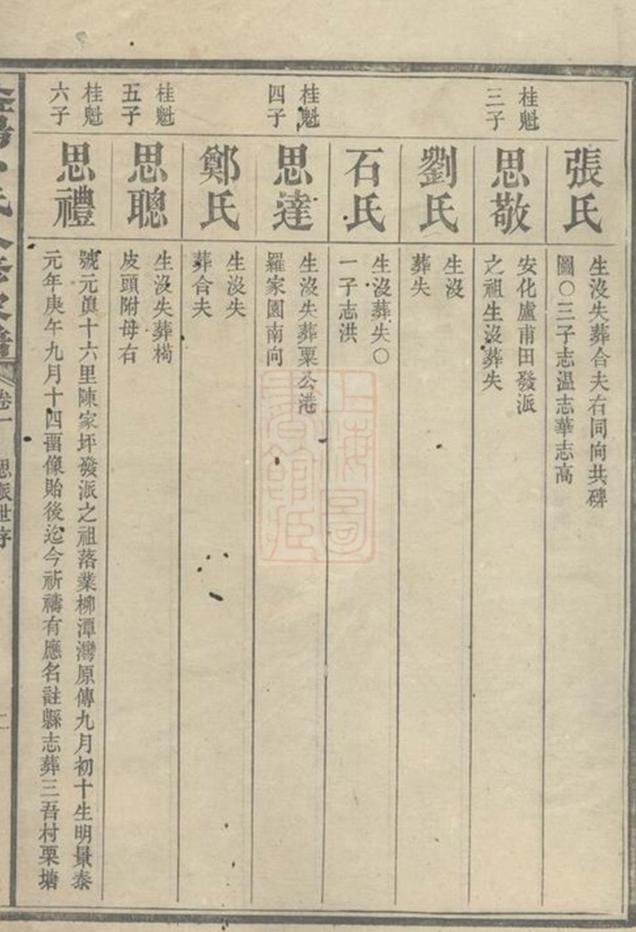 張氏
生沒失葬合夫右同向共碑
圖〇三子志温志華志高
桂魁
三子
思敬
安化盧甫田發派
之祖生沒葬失
劉氏
生沒
葬失
石氏
生沒葬失〇
一子志洪
桂魁
四子
思達
生沒失葬粟公港
羅家園南向
鄭氏
生沒失
葬合夫
桂魁
五子
思聰
生沒失葬楬
皮頭附母右
桂魁
六子
思禮
號元眞十六里陳家坪發派之祖落業柳潭灣原傳九月初十生明景泰
元年庚午九月十四畱像貽後迄今祈禱有應名註縣志葬三吾村栗塘
卷一
思派世序
二